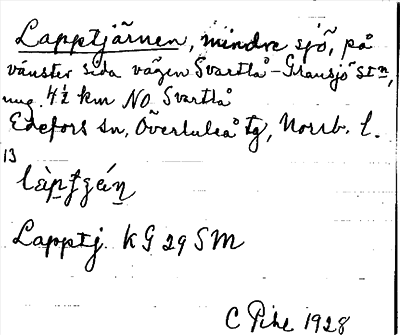 Lapptjärnen, mindre sjö, på
vänster sida vägen Svartlå-Gransjö stn,
ung. 4½ km NO Svartlå
Edefors sn, Överluleå tg, Norrb. l.
13
Lapptj. KG 29 SM
C Pihl 1928